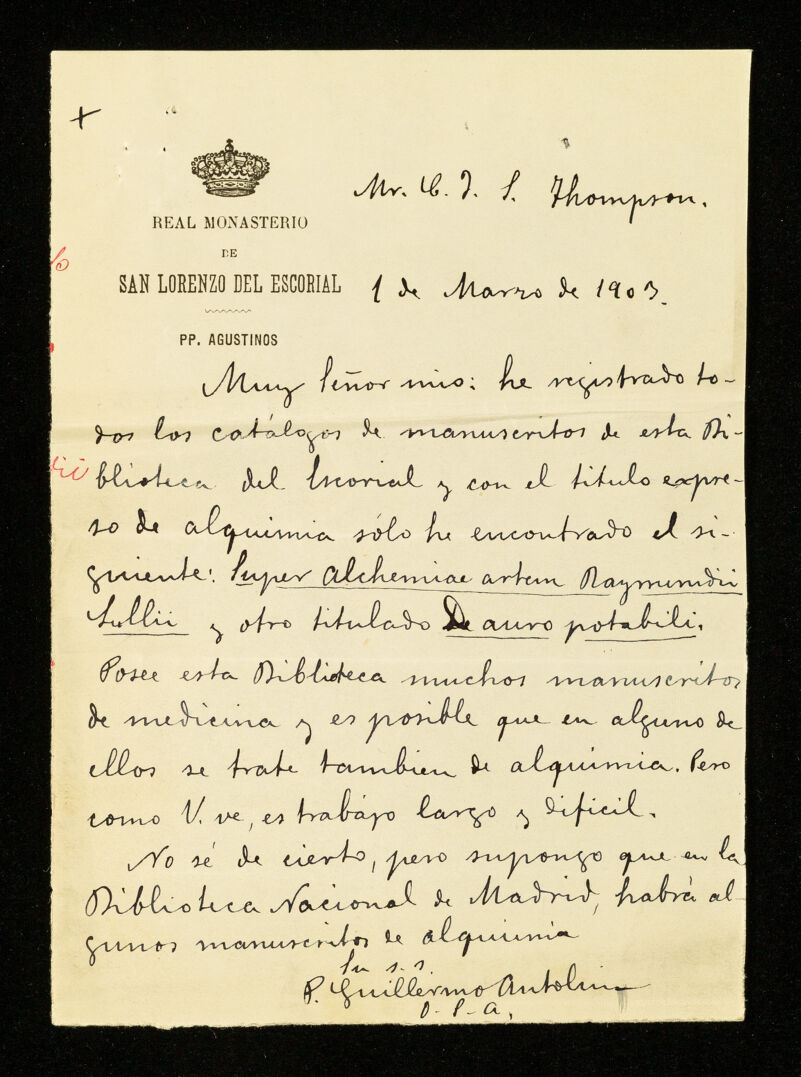 +
REAL MONASTERIO
DE
SAN LORENZO DEL ESCORIAL
PP. AGUSTINOS
Mr. C. J. S. Thompson.
1 de Marzo de 1903.
Muy Señor mio: he registrado to-
dos los catálogos de manuscritos de esta Bi-
blioteca del Escorial y con el titulo expre-
so de alquimia sólo he encontrado el si-
guiente: Super Alchemiae artem Raymundii
Lullii y otro titulado De auro potabili.
Posee esta Biblioteca muchos manuscritos
de medicina y es posible que en alguno de
ellos se trate tambien de alquimia. Pero
como V. ve, es trabajo largo y dificil.
No sé de cierto, pero supongo que en la
Biblioteca Nacional de Madrid, habrá al-
gunos manuscritos de alquimia
Su s. s.
P. Guillermo Antolin
O. S. A.